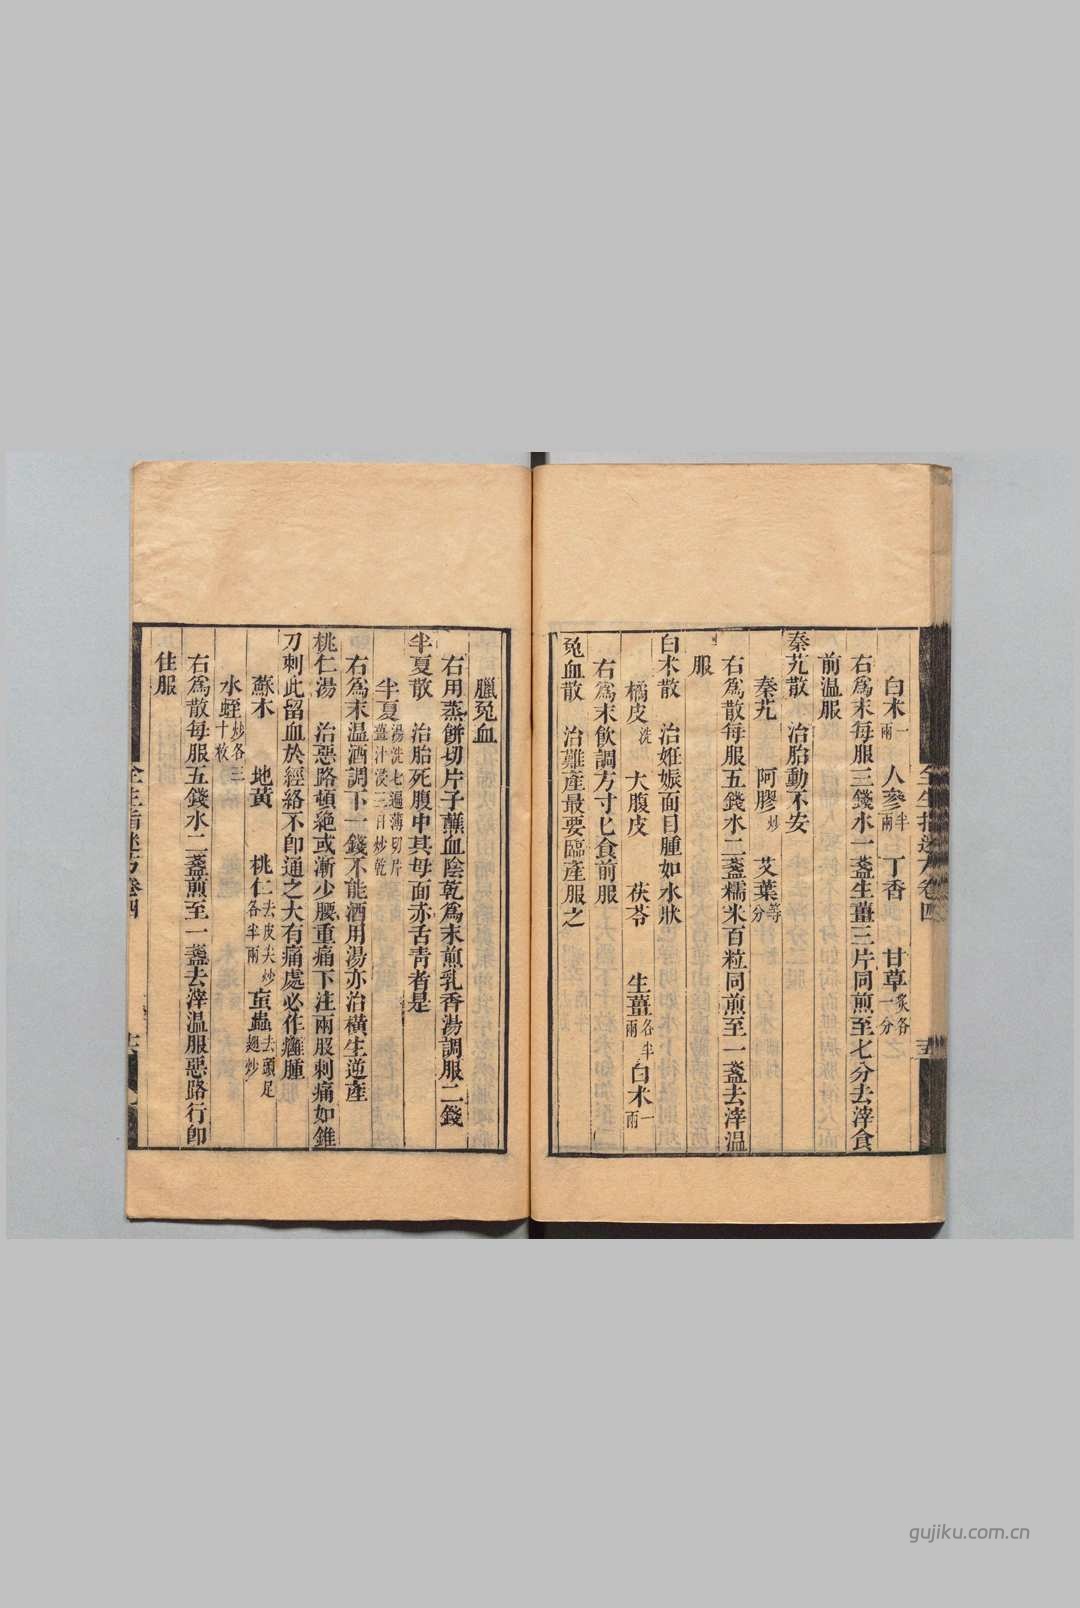 全生指迷方卷四
白朮一兩 人參半兩 丁香 甘草炙各一分
右爲末每服三錢水一盞生薑三片同煎至七分去滓食
前温服
秦艽散 治胎動不安
秦艽 阿膠炒 艾葉等分
右爲散每服五錢水二盞糯米百粒同煎至一盞去滓温
服
白朮散 治姙娠面目腫如水狀
橘皮洗 大腹皮 茯苓 生薑各半兩 白朮一兩
右爲末飲調方寸匕食前服
兔血散 治難產最要臨產服之
臘兔血
右用蒸餅切片子蘸血陰乾爲末煎乳香湯調服二錢
半夏散 治胎死腹中其母面赤舌青者是
半夏湯洗七遍薄切片薑汁浸三日炒乾
右爲末温酒調下一錢不能酒用湯亦治橫生逆產
桃仁湯 治惡路頓絶或漸少腰重痛下注兩股刺痛如錐
刀刺此留血於經絡不卽通之大有痛處必作癰腫
蘇木 地黃 桃仁去皮尖炒各半兩 䖟蟲去頭足翅炒
水蛭炒各三十枚
右爲散每服五錢水二盞煎至一盞去滓温服惡路行卽
住服
全生指迷方卷四
gujiku.com.cn